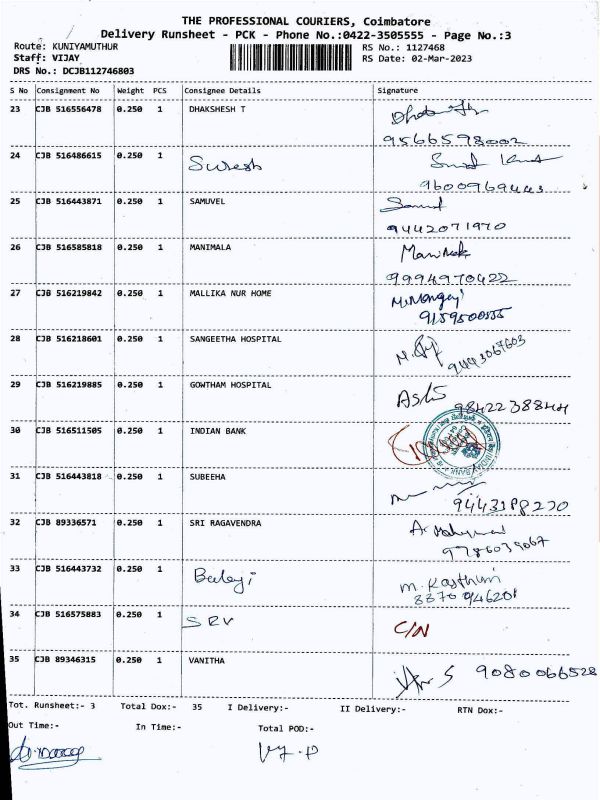 THE PROFESSIONAL COURIERS, Coimbatore
Delivery Runsheet - PCK - Phone No.:0422-3505555 - Page No.:3
Route: KUNIYAMUTHUR RS No.: 1127468
Staff: VIJAY RS Date: 02-Mar-2023
DRS No.: DCJB112746803
S No Consignment No Weight PCS Consignee Details Signature
23 CJB 516556478 0.250 1 DHAKSHESH T
9566598002
24 CJB 516486615 0.250 1 Suresh
9600969443
25 CJB 516443871 0.250 1 SAMUVEL
9442071970
26 CJB 516585818 0.250 1 MANIMALA
9994970422
27 CJB 516219842 0.250 1 MALLIKA NUR HOME
9159500555
28 CJB 516218601 0.250 1 SANGEETHA HOSPITAL
9443067603
29 CJB 516219885 0.250 1 GOWTHAM HOSPITAL
9842238844
30 CJB 516511505 0.250 1 INDIAN BANK
31 CJB 516443818 0.250 1 SUBEEHA
32 CJB 89336571 0.250 1 SRI RAGAVENDRA
9786039067
33 CJB 516443732 0.250 1 Balaji M. Kasthuri
8370946201
34 CJB 516575883 0.250 1 SRV C/N
35 CJB 89346315 0.250 1 VANITHA 9080066528
Tot. Runsheet:- 3 Total Dox:- 35 I Delivery:- II Delivery:- RTN Dox:-
Out Time:- In Time:- Total POD:-